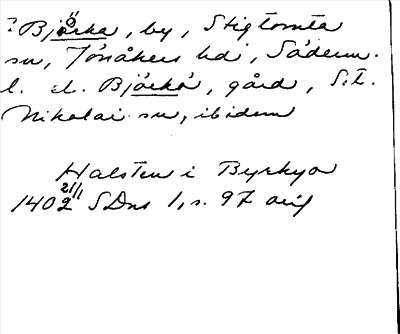 ? Björka, by, Stigtomta
sn, Jönåkers hd, Söderm.
l. el. Björkö, gård, S:t.
Nikolai sn, ibidem
Halsten i Byrkyo
1402 21/1 SDns 1, s. 97 orig